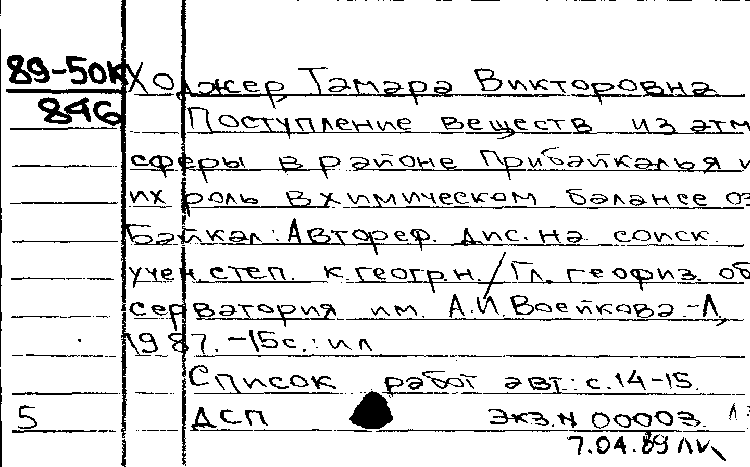 89-50К Ходжер, Тамара Викторовна
846
Поступление веществ из атм
сферы в районе Прибайкалья и
их роль в химическом балансе оз
Байкал: Автореф. дис. на соиск.
учен. степ. к. геогр. н. / Гл. геофиз. об
серватория им. А.И. Воейкова. - Л,
1987. - 15 с.: ил
Список работ авт.: с. 14-15.
5 ДСП Экз. N 00003.
7.04.89